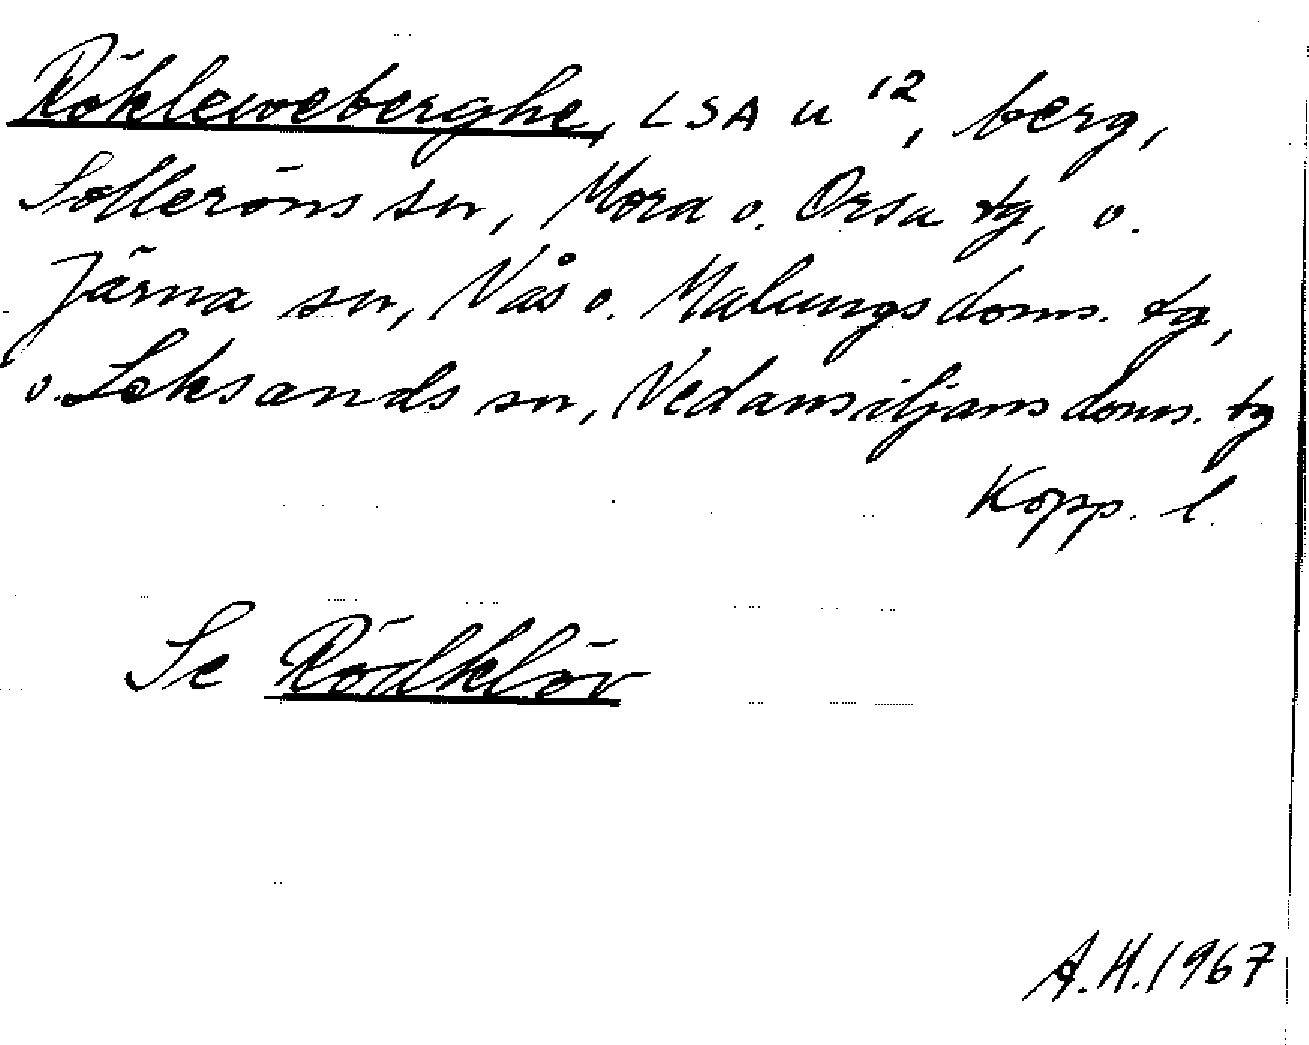 Röklewoeberghe, LSA u 12, berg,
Solleröns sn, Mora o. Orsa tg, o.
Järna sn, Nås o. Malungs doms. tg,
o. Leksands sn, Nedansiljans doms. tg
Kopp. l.
Se Rödklöv
A.H. 1967